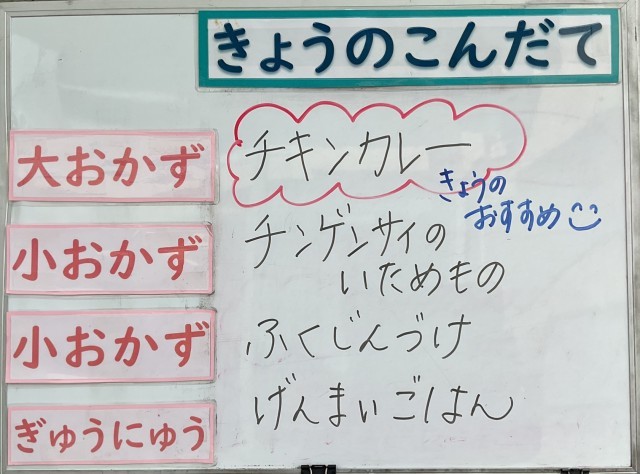 きょうのこんだて
大おかず
チキンカレー
きょうの
おすすめ
小おかず
チンゲンサイの
いためもの
小おかず
ふくじんづけ
ぎゅうにゅう
げんまいごはん